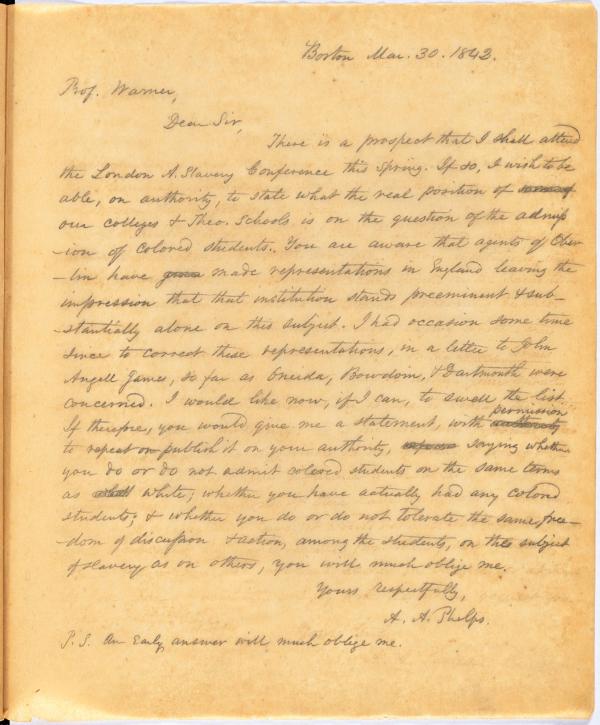 Boston Mar. 30. 1842.
Prof. Warner,
Dear Sir,
There is a prospect that I shall attend
the London A. Slavery Conference this Spring. If so, I wish to be
able, on authority, to state what the real position of
our colleges & Theo. Schools is on the question of the admiss
-ion of colored students. You are aware that agents of Ober
-lin have made representations in England leaving the
impression that that institution stands preeminent & sub-
-stantially alone on this subject. I had occasion some time
since to correct these representations, in a letter to John
Angell James, so far as Oneida, Bowdoin, & Dartmouth were
concerned. I would like now, if I can, to swell the list.
If therefore, you would give me a statement, with authority permission
to repeat or publish it on your authority, saying whether
you do or do not admit colored students on the same terms
as white; whether you have actually had any colored
students; & whether you do or do not tolerate the same free-
-dom of discussion & action, among the students, on this subject
of slavery as on others, you will much oblige me.
Yours respectfully,
A. A. Phelps.
P.S. An early answer will much oblige me.